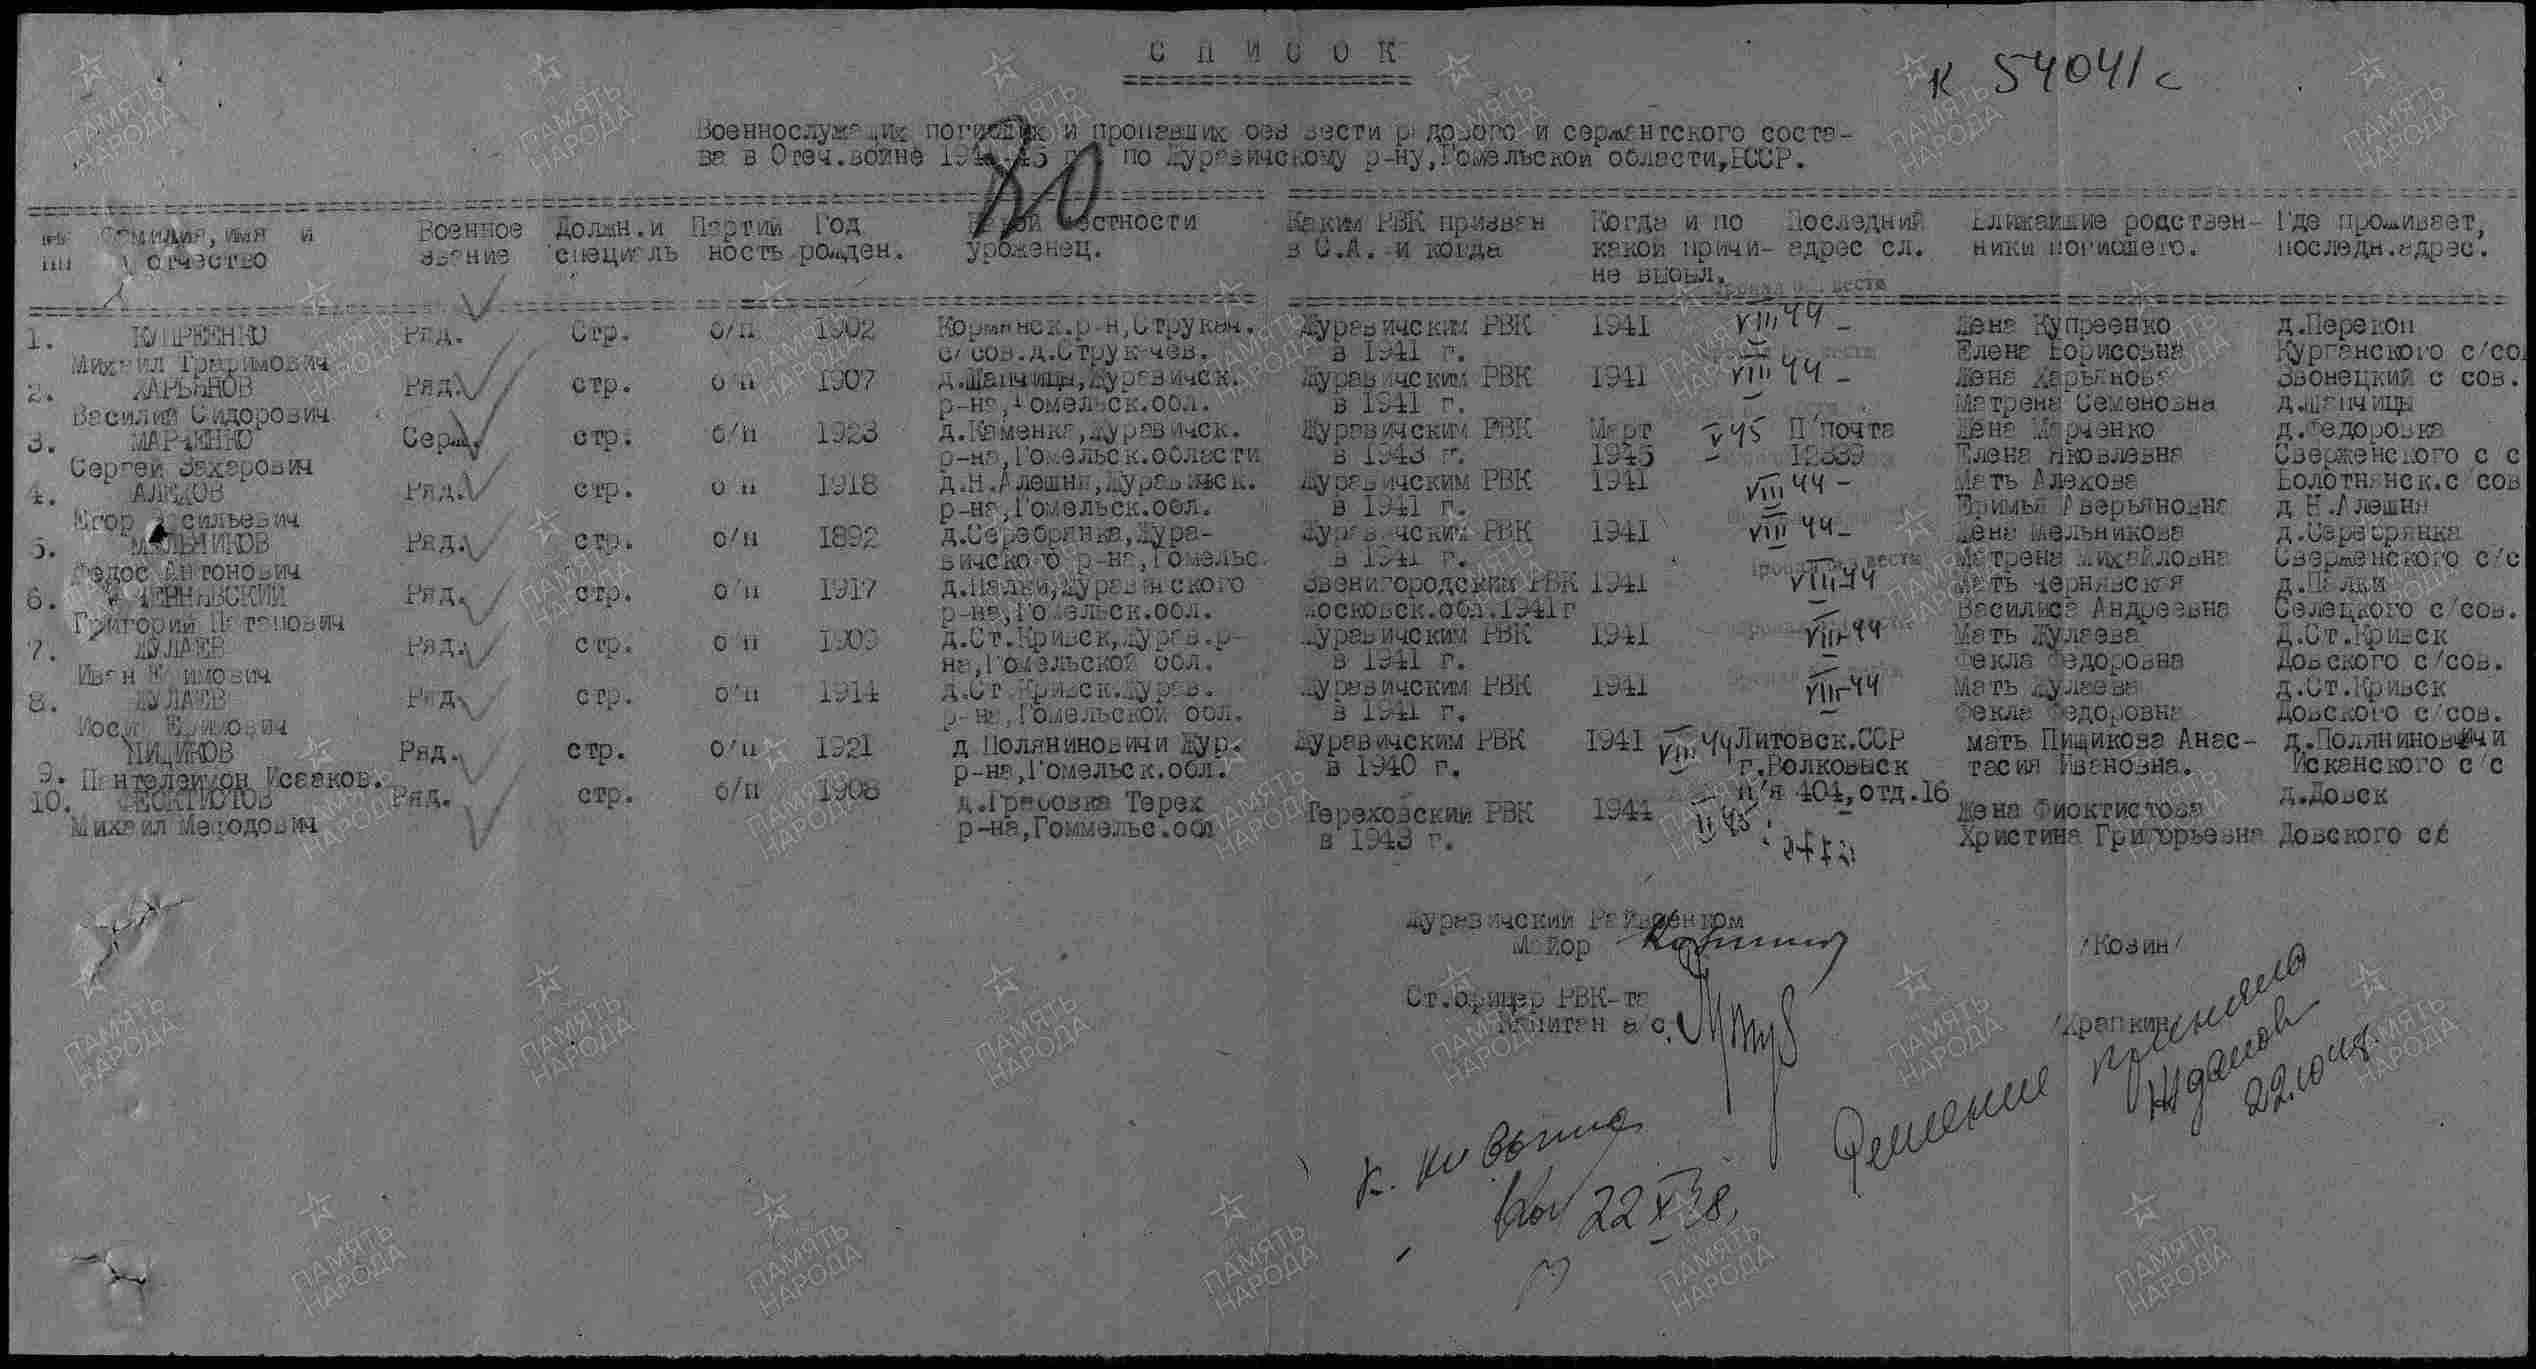 С П И С О К
К 54041с
Военнослужащих погибших и пропавших без вести рядового и сержантского соста-
ва в Отеч.войне 1941-45 г.г. по Журавичскому р-ну,Гомельской области,БССР.
80
№№ Фамилия, имя и Военное Должн.и Партий Год Какой местности Каким РВК призван Когда и по Последний Ближайшие родствен- Где проживает,
пп отчество звание специаль ность рожден. уроженец. в С.А. и когда какой причи- адрес сл. ники погибшего. последн.адрес.
не выбыл.
пропал без вести
1. КУПРЕЕНКО Ряд. Стр. б/п 1902 Кормянск.р-н,Струкач. Журавичским РВК 1941 VIII 44 Жена Купреенко д.Перекоп
Михаил Трафимович с/сов.д.Струкачев. в 1941 г. Елена Борисовна Курганского с/со
2. ХАРЬЯНОВ Ряд. стр. б/п 1907 д.Шапчицы,Журавичск. Журавичским РВК 1941 VIII 44 Жена Харьянова Звонецкий с сов.
Василий Сидорович р-на,Гомельск.обл. в 1941 г. Матрена Семеновна д.Шапчицы
3. МАРЧЕНКО Серж. стр. б/п 1923 д.Каменка,Журавичск. Журавичским РВК Март V 45 П/почта Жена Марченко д.Федоровка
Сергей Захарович р-на,Гомельск.области в 1943 г. 1945 12839 Елена Яковлевна Сверженского с с
4. АЛЕХОВ Ряд. стр. б/п 1918 д.Н.Алешня,Журавичск. Журавичским РВК 1941 VIII 44 Мать Алехова Болотнянск.с/сов
Егор Васильевич р-на,Гомельск.обл. в 1941 г. Ефимья Аверьяновна д.Н.Алешня
5. МЕЛЬНИКОВ Ряд. стр. б/п 1892 д.Серебрянка,Жура- Журавичским РВК 1941 VIII 44 Жена Мельникова д.Серебрянка
Федос Антонович вичского р-на,Гомельс. в 1941 г. Матрена Михайловна Сверженского с/с
пропал без вести
6. ЧЕРНЯВСКИЙ Ряд. стр. б/п 1917 д.Палки,Журавичского Звенигородским РВК 1941 VIII-44 Мать Чернявская д.Палки
Григорий Потапович р-на,Гомельск.обл. московск.обл.1941г Василиса Андреевна Селецкого с/сов.
7. ЖУЛАЕВ Ряд. стр. б/п 1909 д.Ст.Кривск,Журав.р- Журавичским РВК 1941 VIII-44 Мать Жулаева Д.Ст.Кривск
Иван Ефимович на,Гомельской обл. в 1941 г. Фекла Федоровна Довского с/сов.
8. ЖУЛАЕВ Ряд. стр. б/п 1914 д.Ст.Кривск.Журав. Журавичским РВК 1941 VIII-44 Мать Жулаева д.Ст.Кривск
Иосиф Ефимович р-на,Гомельской обл. в 1941 г. Фекла Федоровна Довского с/сов.
9. ПИЩИКОВ Ряд. стр. б/п 1921 д Поляниновичи Жур. Журавичским РВК 1941 VIII 44 Литовск.ССР мать Пищикова Анас- д.Поляниновичи
Пантелеймон Исааков. р-на,Гомельск.обл. в 1940 г. г.Волковыск тасия Ивановна. Исканского с/с
п/я 404,отд.16
10. ФЕОКТИСТОВ Ряд. стр. б/п 1908 д.Грабовка Терех Тереховский РВК 1944 II 45 Жена Фиоктистова д.Довск
Михаил Мефодович р-на,Гоммельс.обл в 1943 г. Христина Григорьевна Довского с/с
Журавичский Райвоенком
Майор /Козин/
Ст.офицер РВК-та
Капитан а/с. /Храпкин/
Решение
Жданов
22.10
22 XI 8
ПАМЯТЬ
НАРОДА